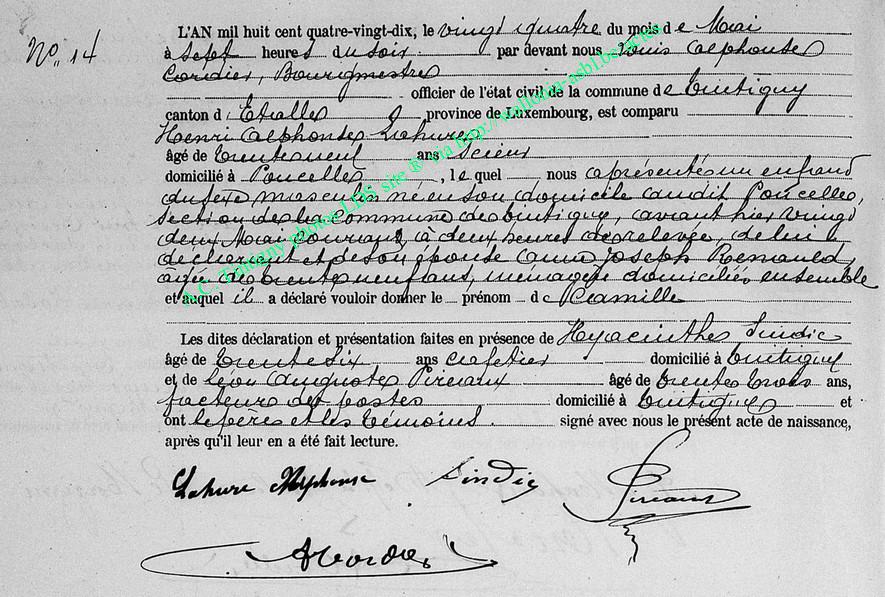 N° 14
L'AN mil huit cent quatre-vingt-dix, le vingt quatre du mois de Mai
à Sept heures du soir par devant nous Louis Alphonse
Cordier, Bourgmestre
officier de l'état civil de la commune de Tintigny
canton d'Etalle province de Luxembourg, est comparu
Henri Alphonse Lahure
âgé de trente neuf ans Scieur
domicilié à Poncelle, lequel nous a présenté un enfant
du sexe masculin né en son domicile audit Poncelle,
section de la commune de Tintigny, avant hier vingt
deux Mai courant, à deux heures de relevée, de lui
déclarant et de son épouse Anne Joseph Renauld,
âgée de trente neuf ans, ménagère domiciliés ensemble
et auquel il a déclaré vouloir donner le prénom de Camille
Les dites déclaration et présentation faites en présence de Hyacinthe Sindic
âgé de trente six ans cafetier domicilié à Tintigny
et de Léon Auguste Pireaux âgé de trente trois ans,
facteur des postes domicilié à Tintigny et
ont le père et les témoins signé avec nous le présent acte de naissance,
après qu'il leur en a été fait lecture.
Lahure Alphonse Sindic Pireaux
A Cordier
A.C. Tintigny photos LDS site ® via http://wallonia-asbl.be